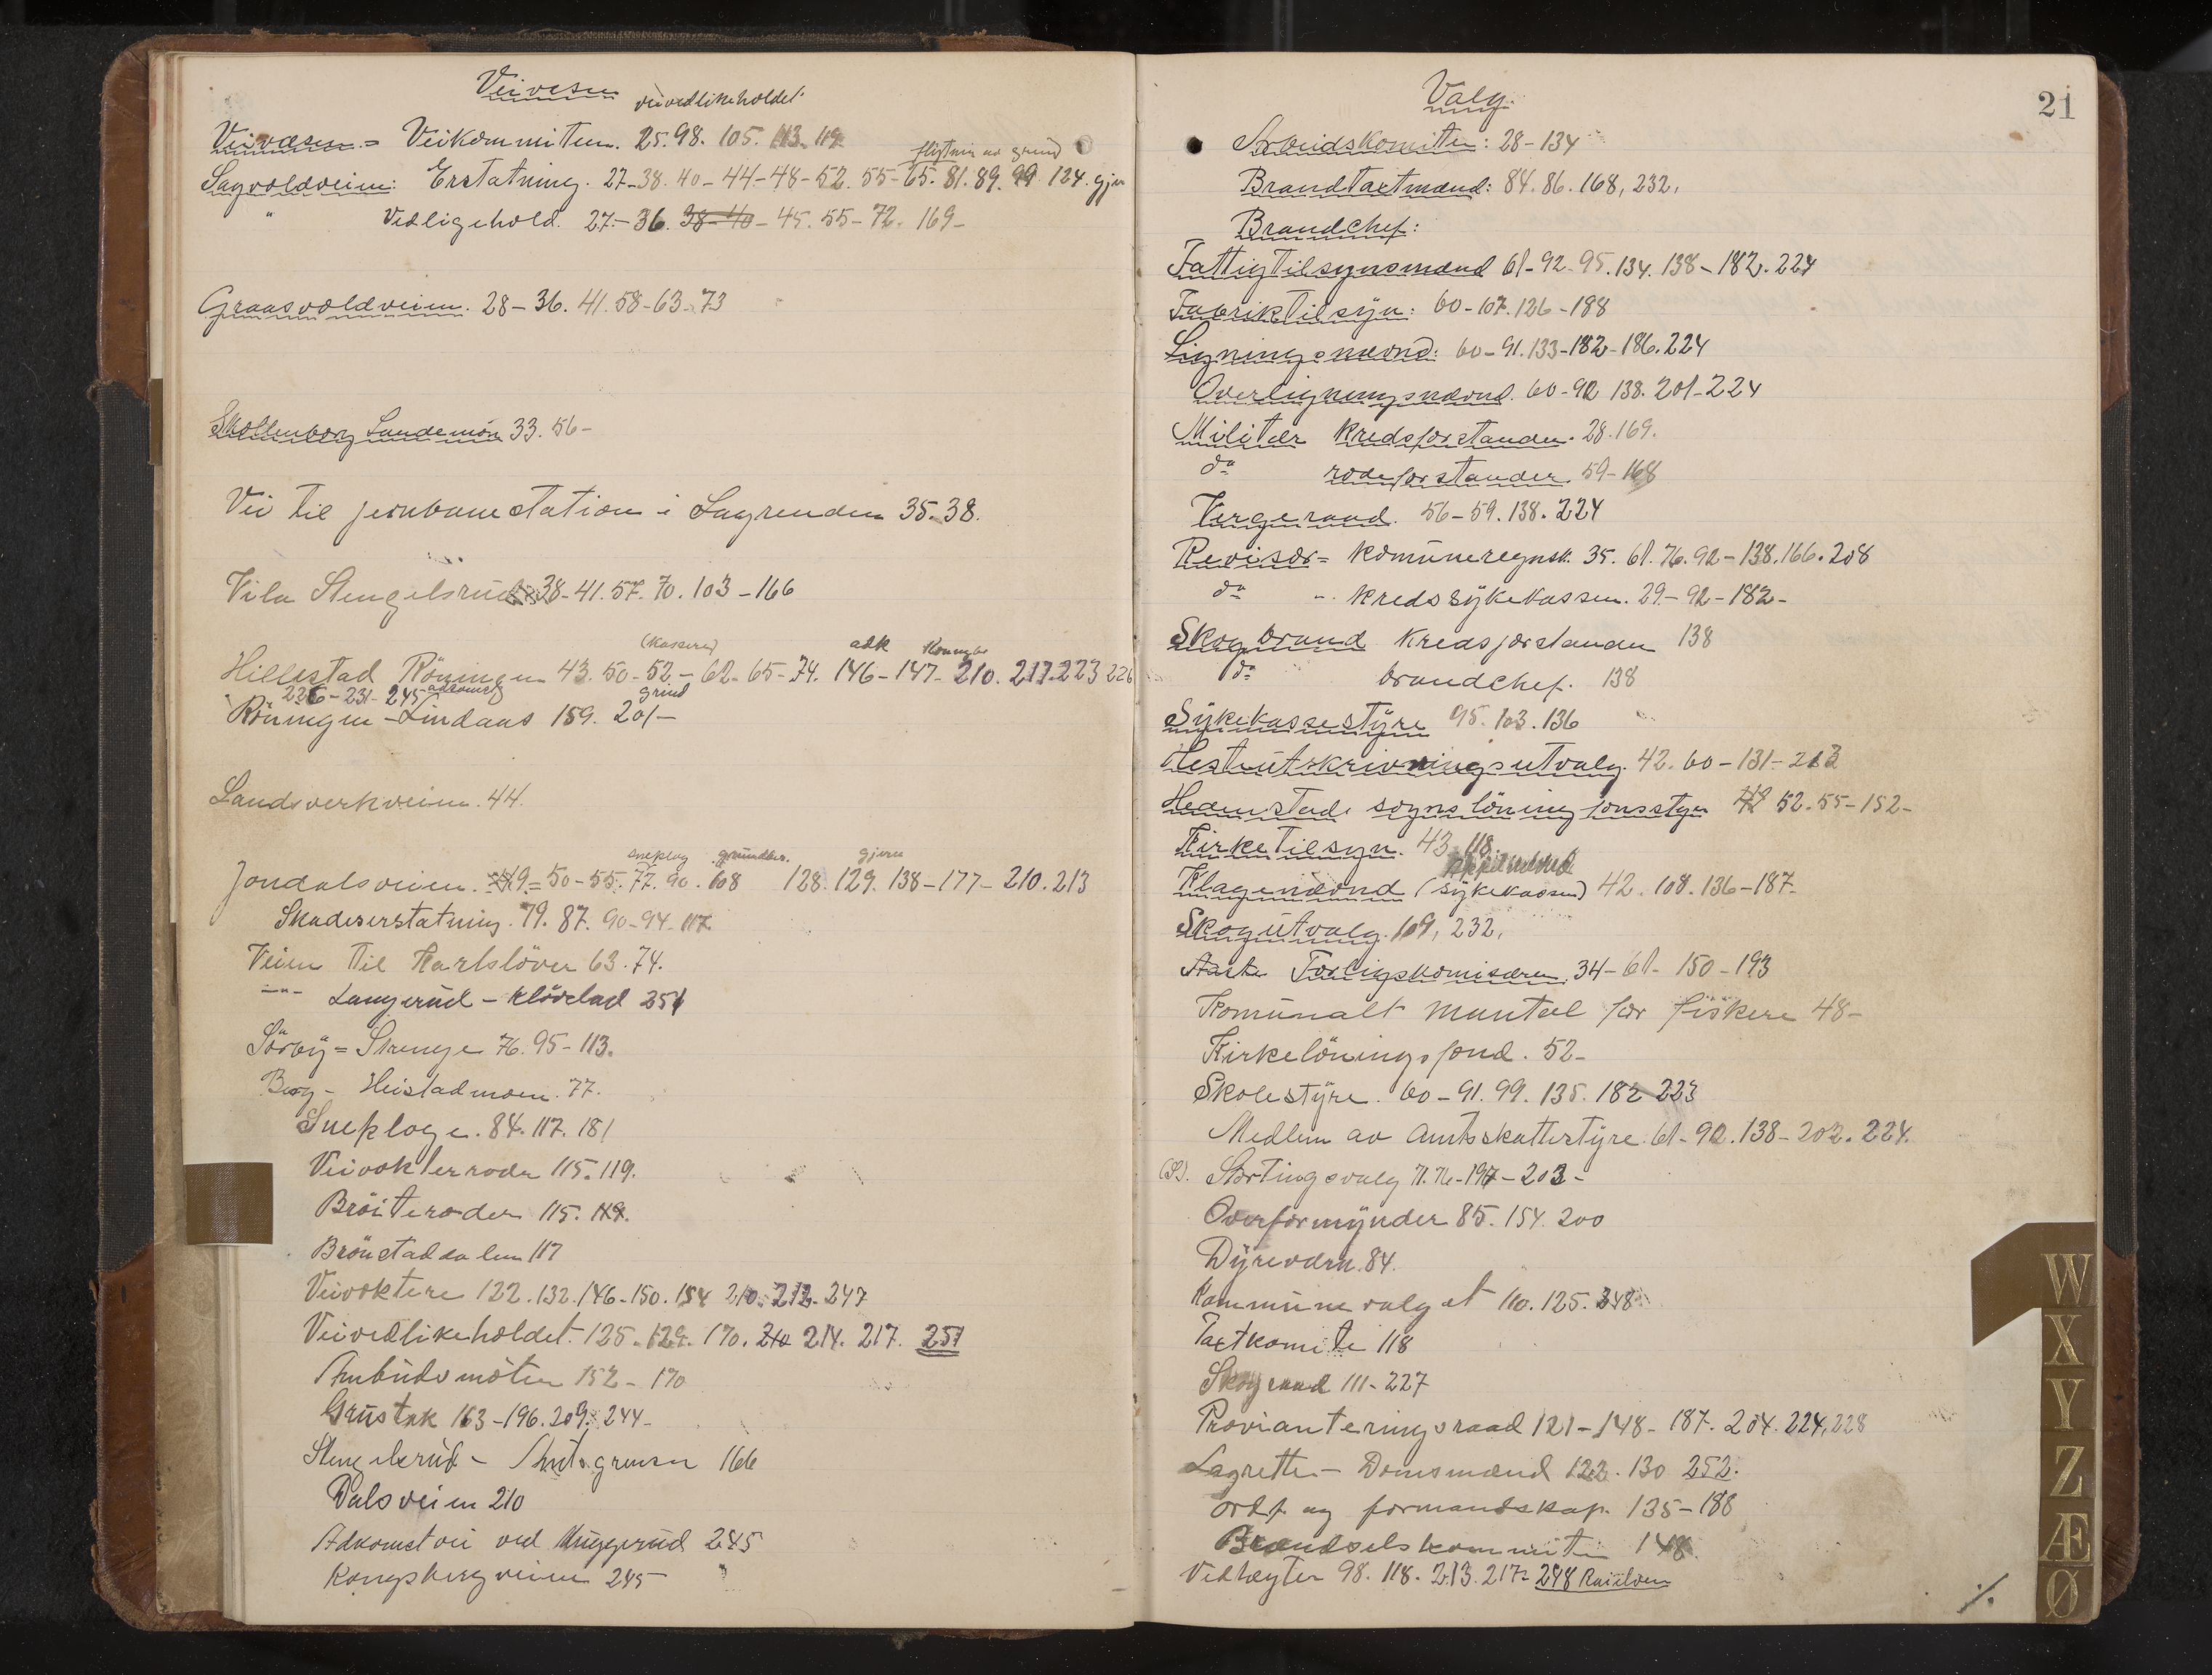 Veivesen
veivedlikeholdet.
Veivæsen = Veikommiteen. 25. 98. 105. 113. 119
flytning av grind
Sagvoldveien: Erstatning. 27-38. 40-44-48-52. 55-65. 81. 89. 99. 124. gjer
" Vedligehold. 27-36. 38-40-45. 55-72. 169-
Graasvoldveien. 28-36. 41. 58-63. 73
Skollenborg Sandemoen 33. 56-
Vei til jernbanestation i Sagrenden 35. 38.
Stengelsrud 38-41. 57. 70. 103-166
(Kasserer) adk
Hillestad Röningen 43. 50-52-62-65-74. 146-147-210. 217. 223 226
226-231-245 adkomst grind
Röningen-Lindaas 159. 201-
Landsverkveien. 44.
sneplog grundbr. gjern
Jondalsveien. 49=50-55. 77. 90. 108 128. 129. 138-177-210. 213
Skadeserstatning. 79. 87. 90-94. 117.
Veien til Karlslöver 63. 74.
-"- Langerud-Klövstad 251
Sörby=Strenge 76. 95-113.
Berg-Heistadmoen. 77.
Sneploge. 84. 117. 181
Veivokterrode 115. 119.
Bröiteroder 115. 119.
Brönstaddalen 117
Veivoktere 122. 132. 146-150. 154 210. 212. 247
Veivedlikeholdet. 125. 129. 170. 210 214. 217. 251
Anbudsmöter 152-170
Grustak 163-196. 209. 244-
Stengelsrud-Amtsgrensen 166
Dalsveien 210
Adkomstvei ved Muggerud 245
Kongsbergveien 245
21
Valg.
Arbeidskomiteen: 28-134
Brandtaxtmænd: 84. 86. 168, 232,
Brandchef:
Fattigtilsynsmænd 61-92-95. 134. 138-182. 224
Fabriktilsyn: 60-107. 126-188
Ligningsnævnd: 60-91. 133-182-186. 224
Overligningsnævnd. 60-92 138. 201-224
Militær Kredsforstander. 28. 169.
do rodeforstander. 59-168
Vergeraad. 56-59. 138. 224
Revisor= Komuneregnsk. 35. 61. 76. 92-138. 166. 208
do " Kredssykekassen. 29-92-182-
Skogbrand Kredsforstander 138
do brandchef. 138
Sykekassestyre 95. 103. 136
Hesteutskrivningsutvalg. 42. 60-131-213
Hedenstads sogns löningsfonsstyr 49 52. 55-152-
Kirketilsyn. 43. 118
Klagenævnd (Sykekassen) 42. 108. 136-187-
Skogutvalg. 109, 232,
Forligskomisæren. 34-61-150-193
Komunalt mantal for fiskere 48-
Kirkelöningsfond. 52-
Skolestyre. 60-91. 99. 135. 182 223
Medlem av Amtsskattestyre. 61-92. 138-202. 224.
(St). Stortingsvalg 71. 76-197-203-
Overformynder 85. 154. 200
Dyrevern. 84.
Kommunevalget 110. 125. 248
Taxtkomite 118
Skograad 111-227
Provianteringsraad 121-148-187. 204. 224, 228
Lagrette-Domsmænd 122. 130 252.
ordf. og formandskap. 135-188
Brændselskommiteen 148
Vedtægter 98. 118. 213. 217-248
W
X
Y
Z
Æ
Ø